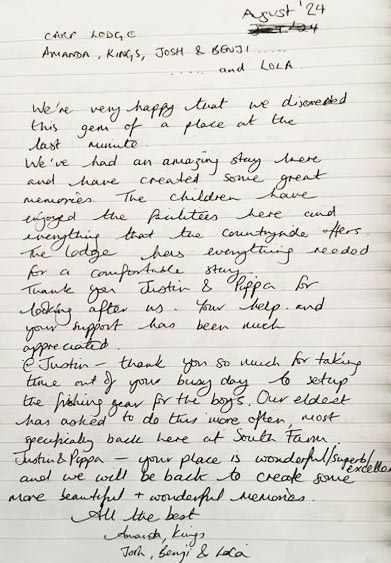 August '24
CARP LODGE
AMANDA, KINGS, JOSH & BENJI .....
..... and LOLA.
We're very happy that we discovered
this gem of a place at the
last minute.
We've had an amazing stay here
and have created some great
memories. The children have
enjoyed the facilities here and
everything that the countryside offers.
The lodge has everything needed
for a comfortable stay.
Thank you Justin & Pippa for
looking after us. Your help and
your support has been much
appreciated.
@ Justin - thank you so much for taking
time out of your busy day to setup
the fishing gear for the boys. Our eldest
has asked to do this more often, most
specifically back here at South Farm.
Justin & Pippa - your place is wonderful/superb/excellent
and we will be back to create some
more beautiful + wonderful memories.
All the best
Amanda, Kings
Josh, Benji & Lola